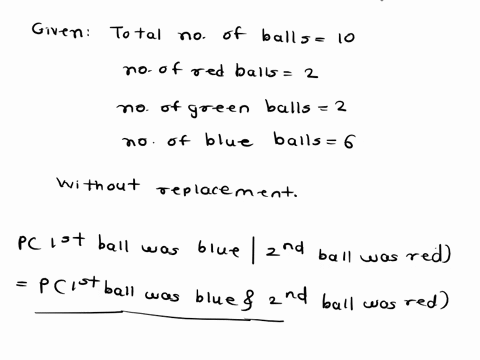 Given: Total no. of balls = 10
no. of red balls = 2
no. of green balls = 2
no. of blue balls = 6
Without replacement.
P(1st ball was blue | 2nd ball was red)
= P(1st ball was blue & 2nd ball was red)